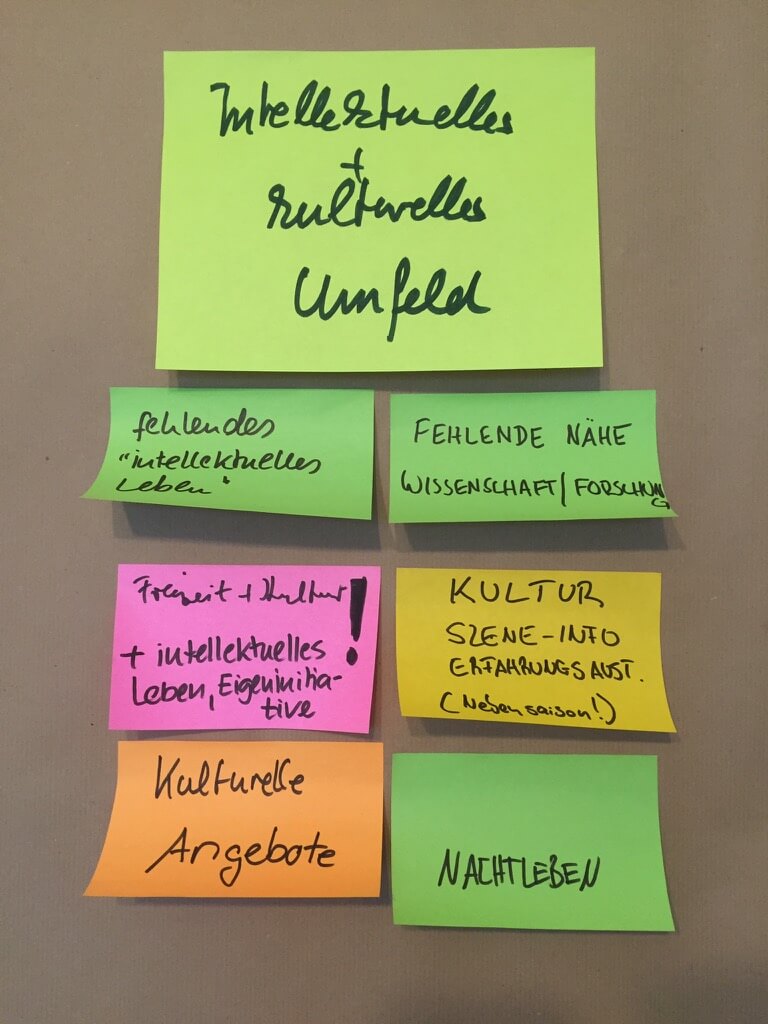 Intellektuelles
+
kulturelles
Umfeld
fehlendes
"intellektuelles
Leben"
FEHLENDE NÄHE
WISSENSCHAFT/FORSCHUNG
Freizeit + Kultur!
+ intellektuelles
Leben, Eigeninitia-
tive
KULTUR
SZENE-INFO
ERFAHRUNGSAUST.
(Nebensaison!)
Kulturelle
Angebote
NACHTLEBEN